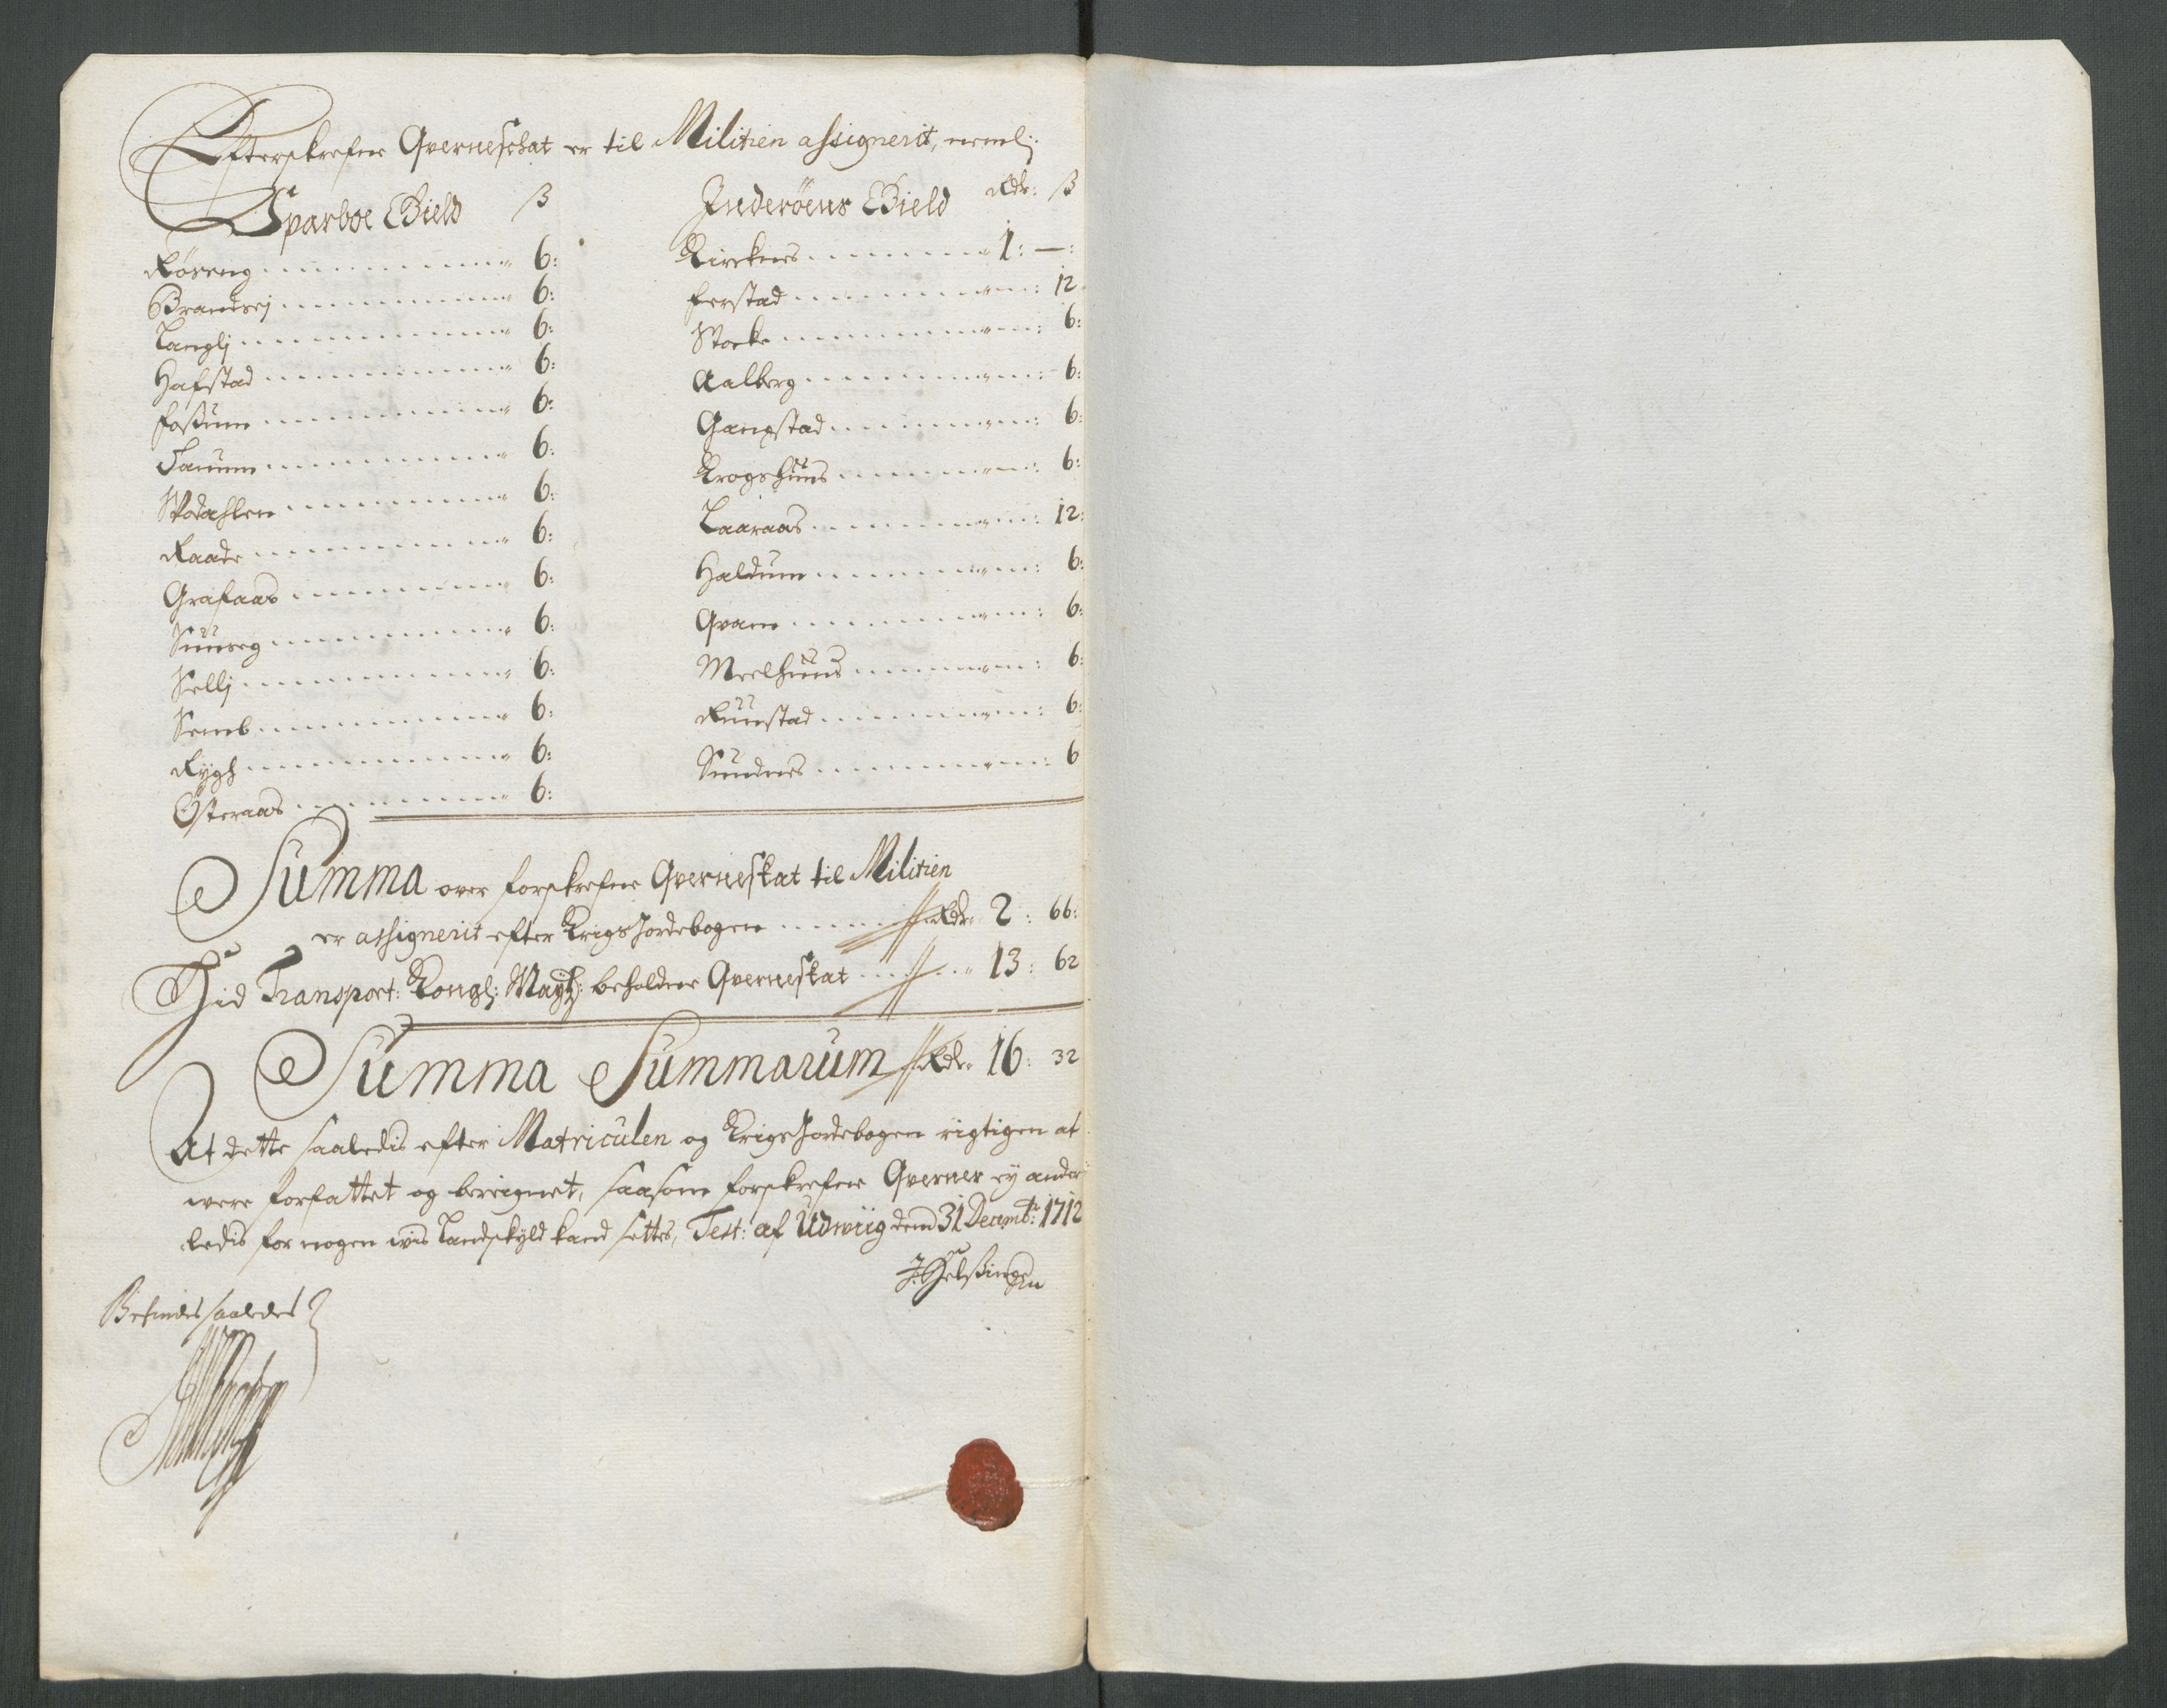 Efterskrefne Qverneschat er til Militien assignerit, neml:
Sparboe Gield ß
Røseng 6:
Brandsej 6:
Langlj 6:
Hafstad 6:
Foßum 6:
Tanum 6:
6:
Raade 6:
Grafaas 6:
6:
Sellj 6:
Semb 6:
Rygh 6:
Østeraas 6:
Inderøens Gield Rdr: ß
Kirknes 1: —:
Ferstad 12
Stocke 6:
Aalberg 6:
Gangstad 6:
Krogshuus 6:
Laaraas 12:
Haldum 6:
Qvam 6:
Meelhuus 6:
Ruustad 6:
Sundnes 6
Summa over forskrefne Qverneskat til Militien
er assignerit efter Krigs Jordebogen Rdr: 2: 66:
Hid Transport: Kongl: Maytz: beholdne Qverneskat 13: 62
Summa Summarum Rdr: 16: 32
At dette saaledis efter Matriculen og Krigs Jordebogen rigtigen at
were forfattet og bereignet, saasom forskrefne Qverner ey ander
ledis for nogen wis Landskyld kand settes, Test: af Udwiig dend 31 Decembr: 1712
Befindes saaledes